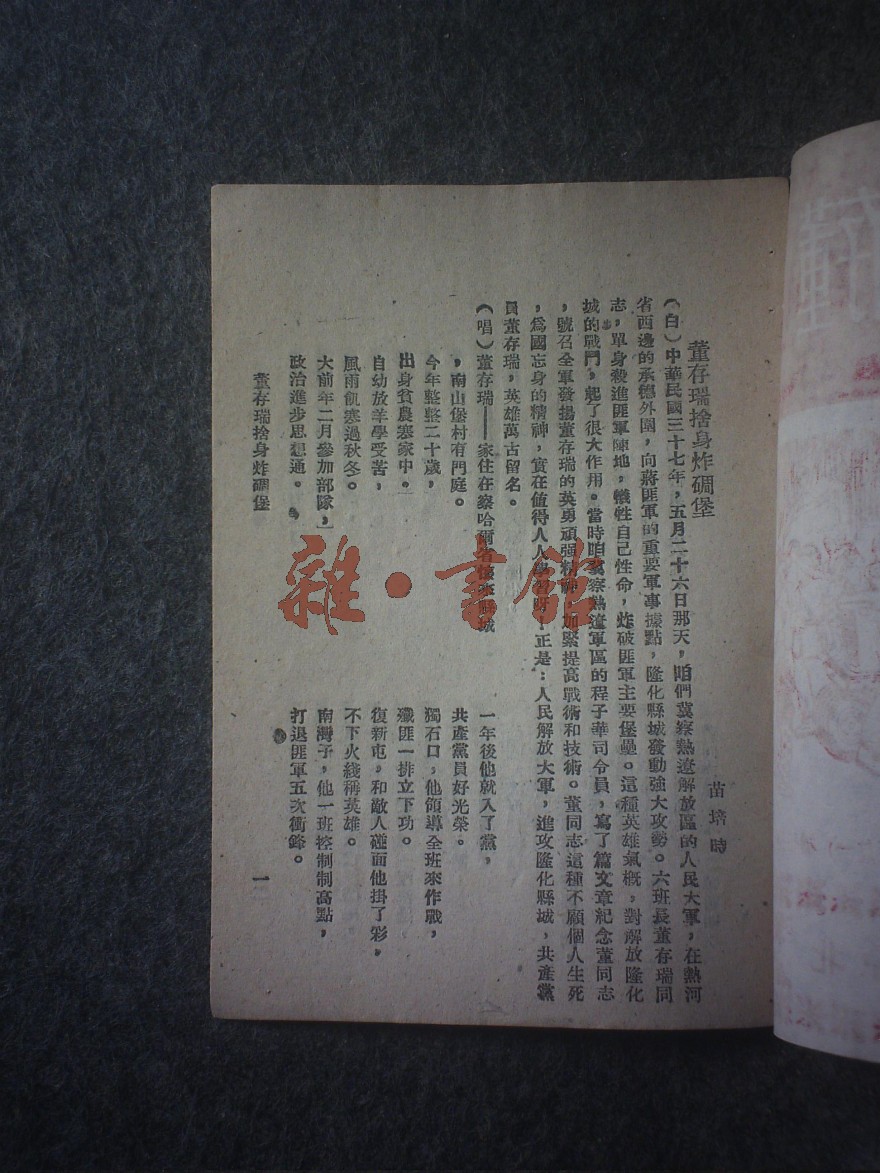 董存瑞捨身炸碉堡
苗培時
(白)中華民國三十七年，五月二十六日那天，咱們冀察熱遼解放區的人民大軍，在熱河
省西邊的承德外圍，向蔣匪軍的重要軍事據點，隆化縣城發動強大攻勢。六班長董存瑞同
志，單身殺進匪軍陣地，犧牲自己性命，炸破匪軍主要堡壘。這種英雄氣概，對解放隆化
城的戰鬥，起了很大作用。當時咱冀察熱遼軍區的程子華司令員，寫了篇文章紀念董同志
，號召全軍發揚董存瑞的英勇頑强精神，加緊提高戰術和技術。董同志這種不顧個人生死
，爲國忘身的精神，實在値得人人學習呀！正是：人民解放大軍，進攻隆化縣城，共產黨
員董存瑞，英雄萬古留名。
(唱)董存瑞——家住在察哈爾省懷來縣城
，南山堡村有門庭。
今年整整二十歲，
出身貧農寒家中。
自幼放羊學受苦，
風雨飢寒過秋冬。
大前年二月參加部隊，
政治進步思想通。
一年後他就入了黨，
共產黨員好光榮。
獨石口，他領導全班來作戰，
殲匪一排立下功。
復新屯，和敵人碰面他掛了彩，
不下火綫稱英雄。
南灣子，他一班控制制高點，
打退匪軍五次衝鋒。
董存瑞捨身炸碉堡
一
雜·書館